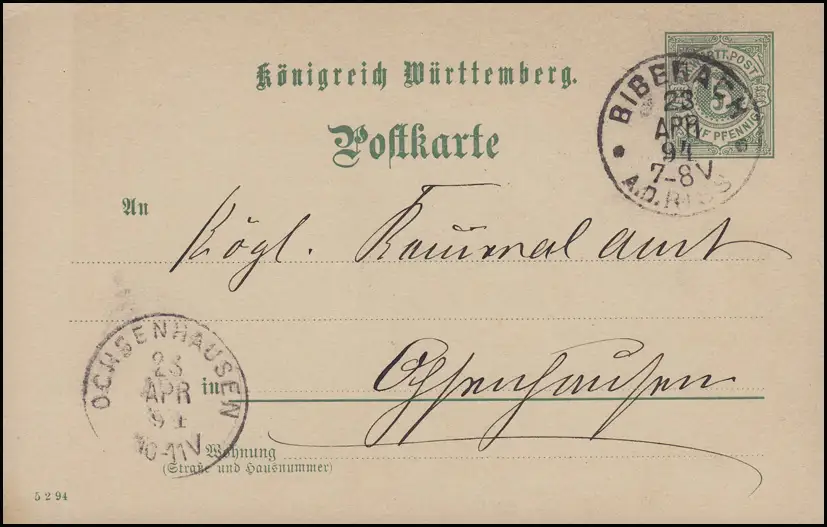 Königreich Württemberg.
Postkarte
WÜRTT. POST
5
FÜNF PFENNIG
BIBERACH
23
APR
94
7-8V
A.D. RISS
An
Kögl. Kameralamt
OCHSENHAUSEN
23
APR
94
10-11V
in Ochsenhausen
Wohnung
(Straße und Hausnummer)
5 2 94